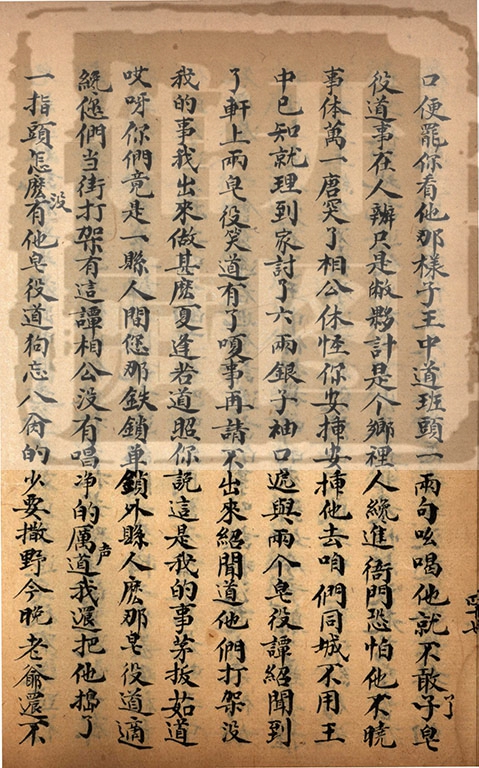 口便罷你看他那樣子王中道班頭一兩句吆喝他就不敢了皂
役道事在人辦只是敝夥計是个鄉裡人纔進衙門恐怕他不曉
事体萬一唐突了相公休怪你安揷安揷他去咱們同城不用王
中已知就理到家討了六兩銀子袖口遞與兩个皂役譚紹聞到
了軒上兩皂役笑道有了嗄事再請不出來紹聞道他們打架没
我的事我出來做甚麽夏逢若道照你説這是我的事茅拔茹道
哎呀你們竟是一縣人間您那鉄鎖单鎖外縣人麽那皂役道適
纔您們当街打架有這譚相公没有唱净的厲声道我還把他搗了
一指頭怎麽没有他皂役道狗忘八肏的少要撒野今晚老爺還不